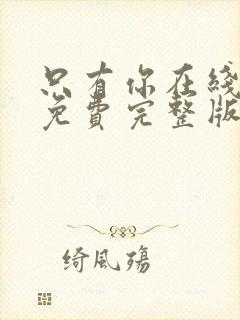 只有你在线
免费完整版
绮风殇